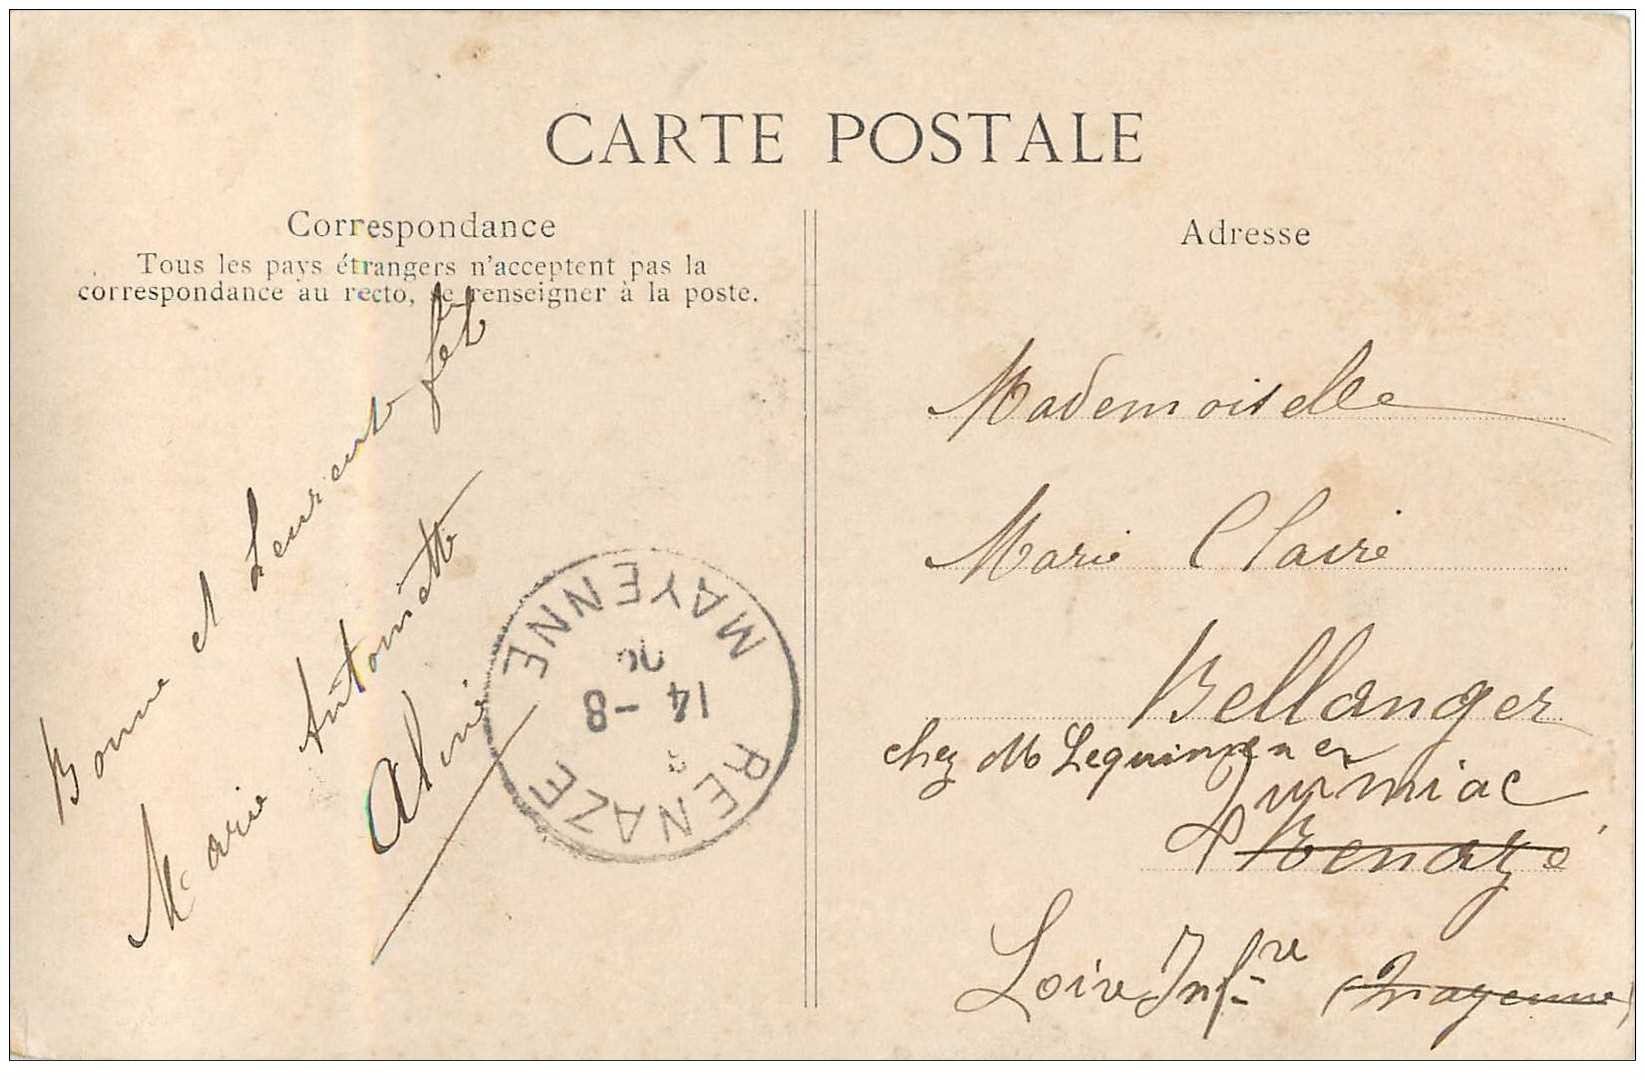 CARTE POSTALE
Correspondance
Tous les pays étrangers n'acceptent pas la
correspondance au recto, se renseigner à la poste.
Bonne et heureuse fête
Marie Antoinette
Aline
MAYENNE
14 - 8
RENAZE
Adresse
Mademoiselle
Marie Claire
Bellanger
chez Mr Lequimener
Juvmiac
à Renazé
Loire Infre (Mayenne)